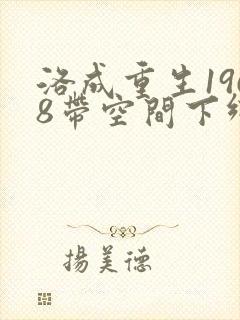 洛成重生19
8帶空間下
揚美德